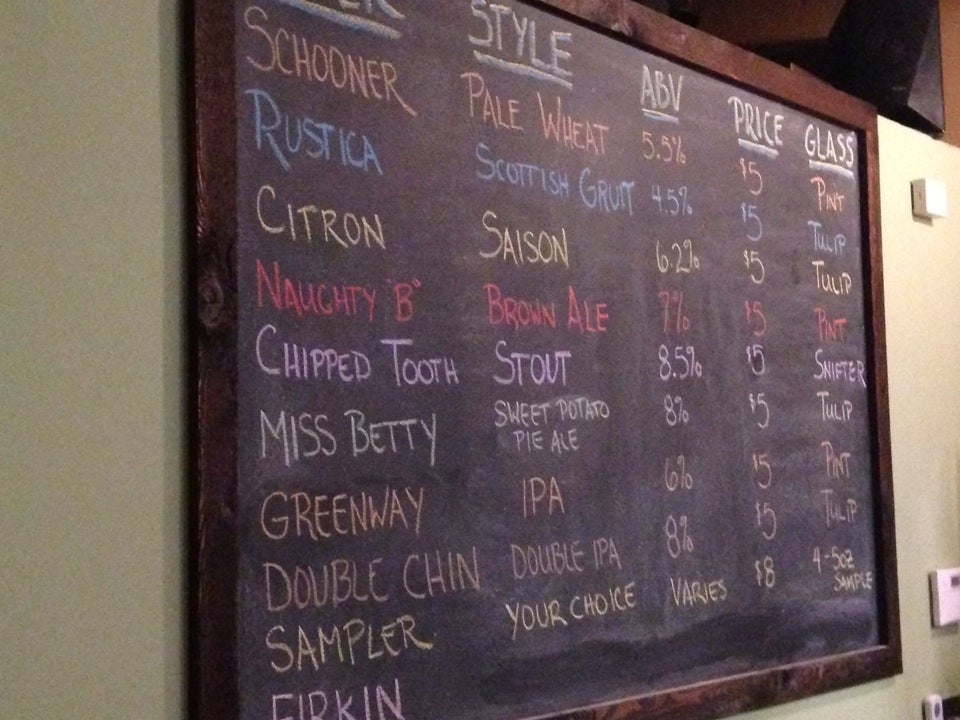 STYLE ABV PRICE GLASS
SCHOONER PALE WHEAT 5.5% $5 PINT
RUSTICA SCOTTISH GRUIT 4.5% $5 TULIP
CITRON SAISON 6.2% $5 TULIP
NAUGHTY "B" BROWN ALE 7% $5 PINT
CHIPPED TOOTH STOUT 8.5% $5 SNIFTER
MISS BETTY SWEET POTATO PIE ALE 8% $5 TULIP
GREENWAY IPA 6% $5 PINT
DOUBLE CHIN DOUBLE IPA 8% $5 TULIP
SAMPLER YOUR CHOICE VARIES $8 4-5oz SAMPLE
FIRKIN